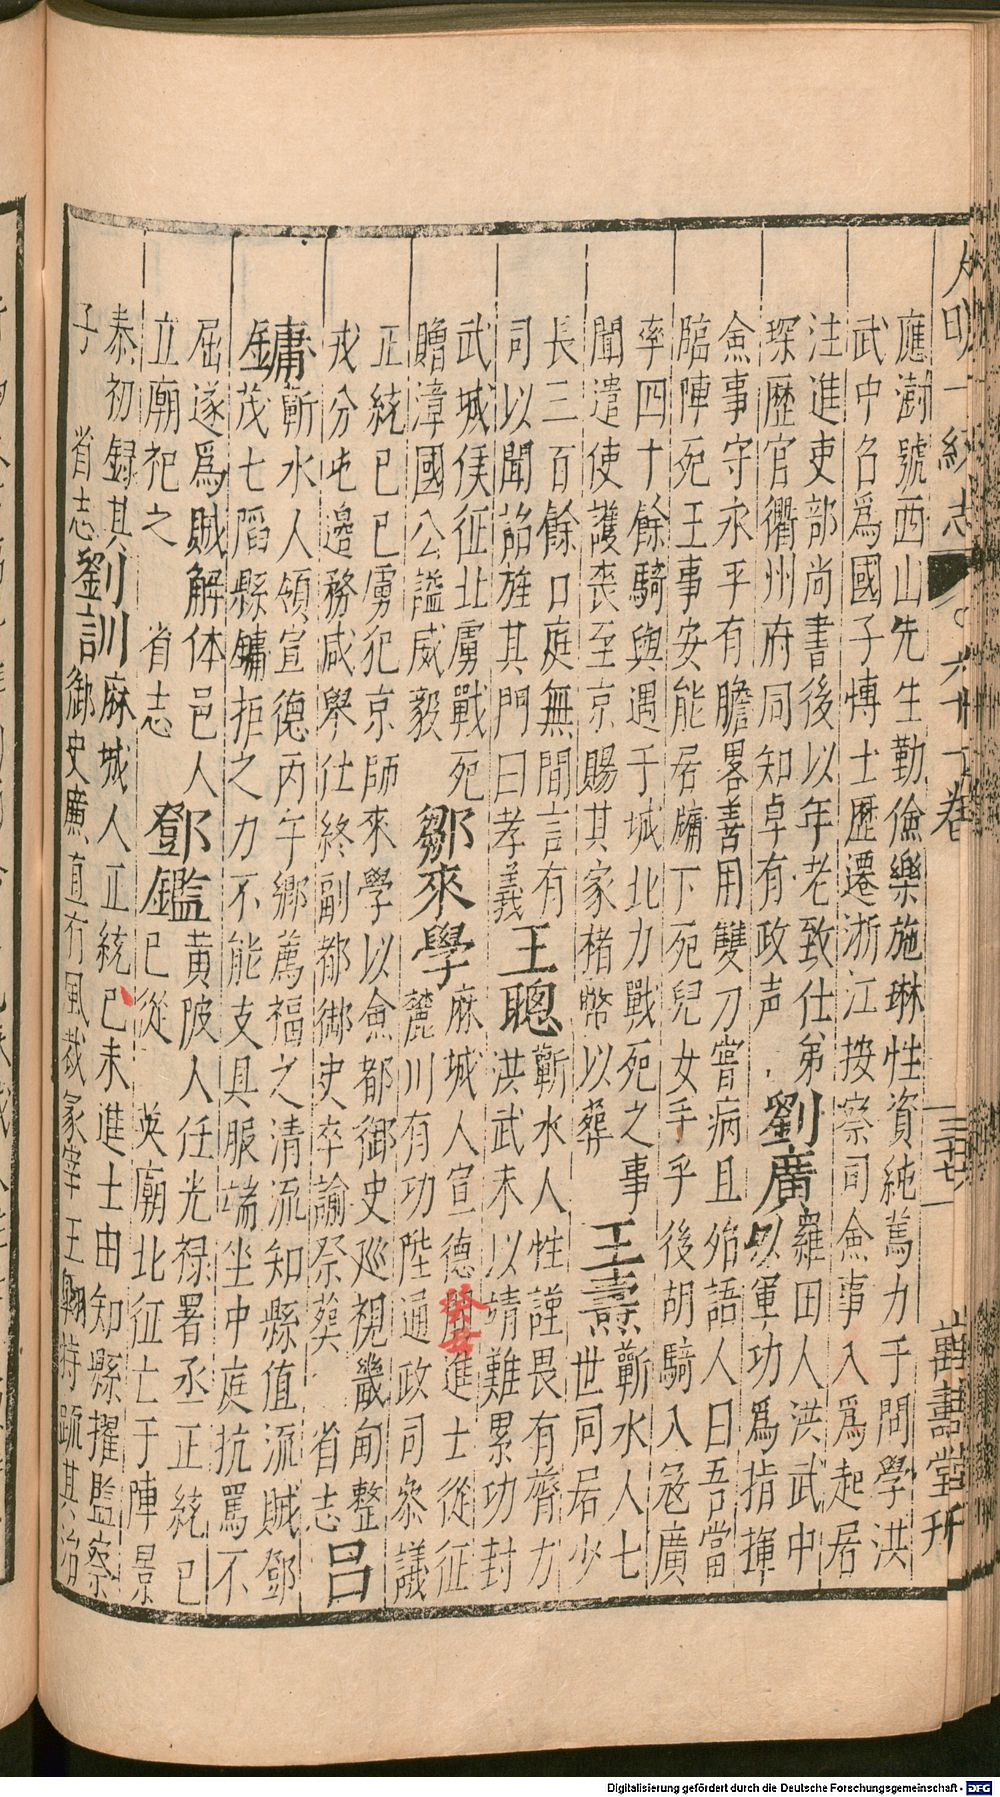 大明一統志 六十一卷 萬壽堂刊
應澍號西山先生勤儉樂施琳性資純篤力于問學洪
武中召爲國子博士歷遷浙江按察司僉事入爲起居
注進吏部尚書後以年老致仕弟劉廣羅田人洪武中
琛歷官衢州府同知卓有政声以軍功爲指揮
僉事守永平有膽畧善用雙刀嘗病且殆語人曰吾當
臨陣死王事安能居牖下死兒女手乎後胡騎入寇廣
率四十餘騎與遇于城北力戰死之事王壽蘄水人七
聞遣使護喪至京賜其家楮幣以葬世同居少
長三百餘口庭無間言有王聰蘄水人性謹畏有膂力
司以聞詔旌其門曰孝義洪武末以靖難累功封
武城侯征北虜戰死鄒來學麻城人宣德癸丑進士從征
贈漳國公謚威毅麓川有功陞通政司參議
正統己巳虜犯京師來學以僉都御史巡視畿甸整呂
戎分屯邊務咸舉仕終副都御史卒諭祭葬省志
鏞蘄水人領宣德丙午鄉薦福之清流知縣值流賊鄧
茂七䧟縣鏞拒之力不能支具服端坐中庭抗罵不
屈遂爲賊解体邑人鄧鑑黄陂人任光禄署丞正統己
立廟祀之省志巳從英廟北征亡于陣景
泰初録其劉訓麻城人正統己未進士由知縣擢監察
子省志御史廉直有風裁冢宰王翱特䟽其治
Digitalisierung gefördert durch die Deutsche Forschungsgemeinschaft - DFG